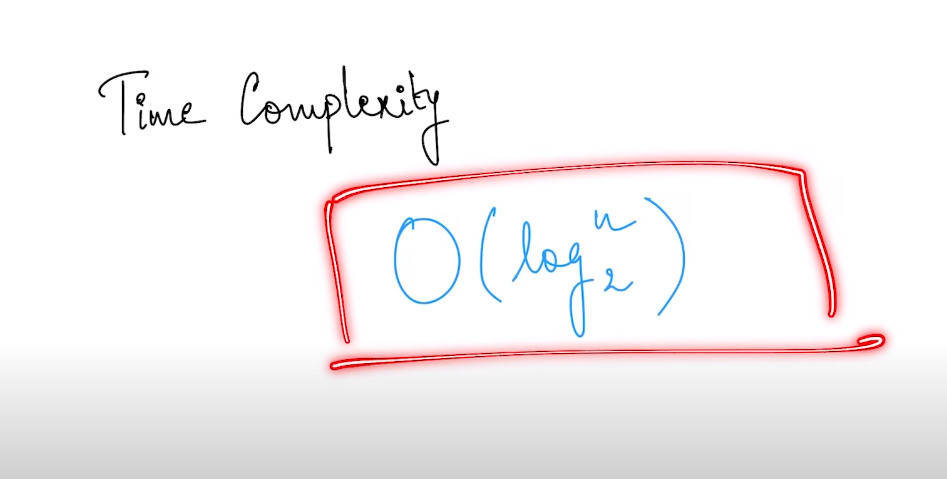 Time Complexity
O(log₂ⁿ)